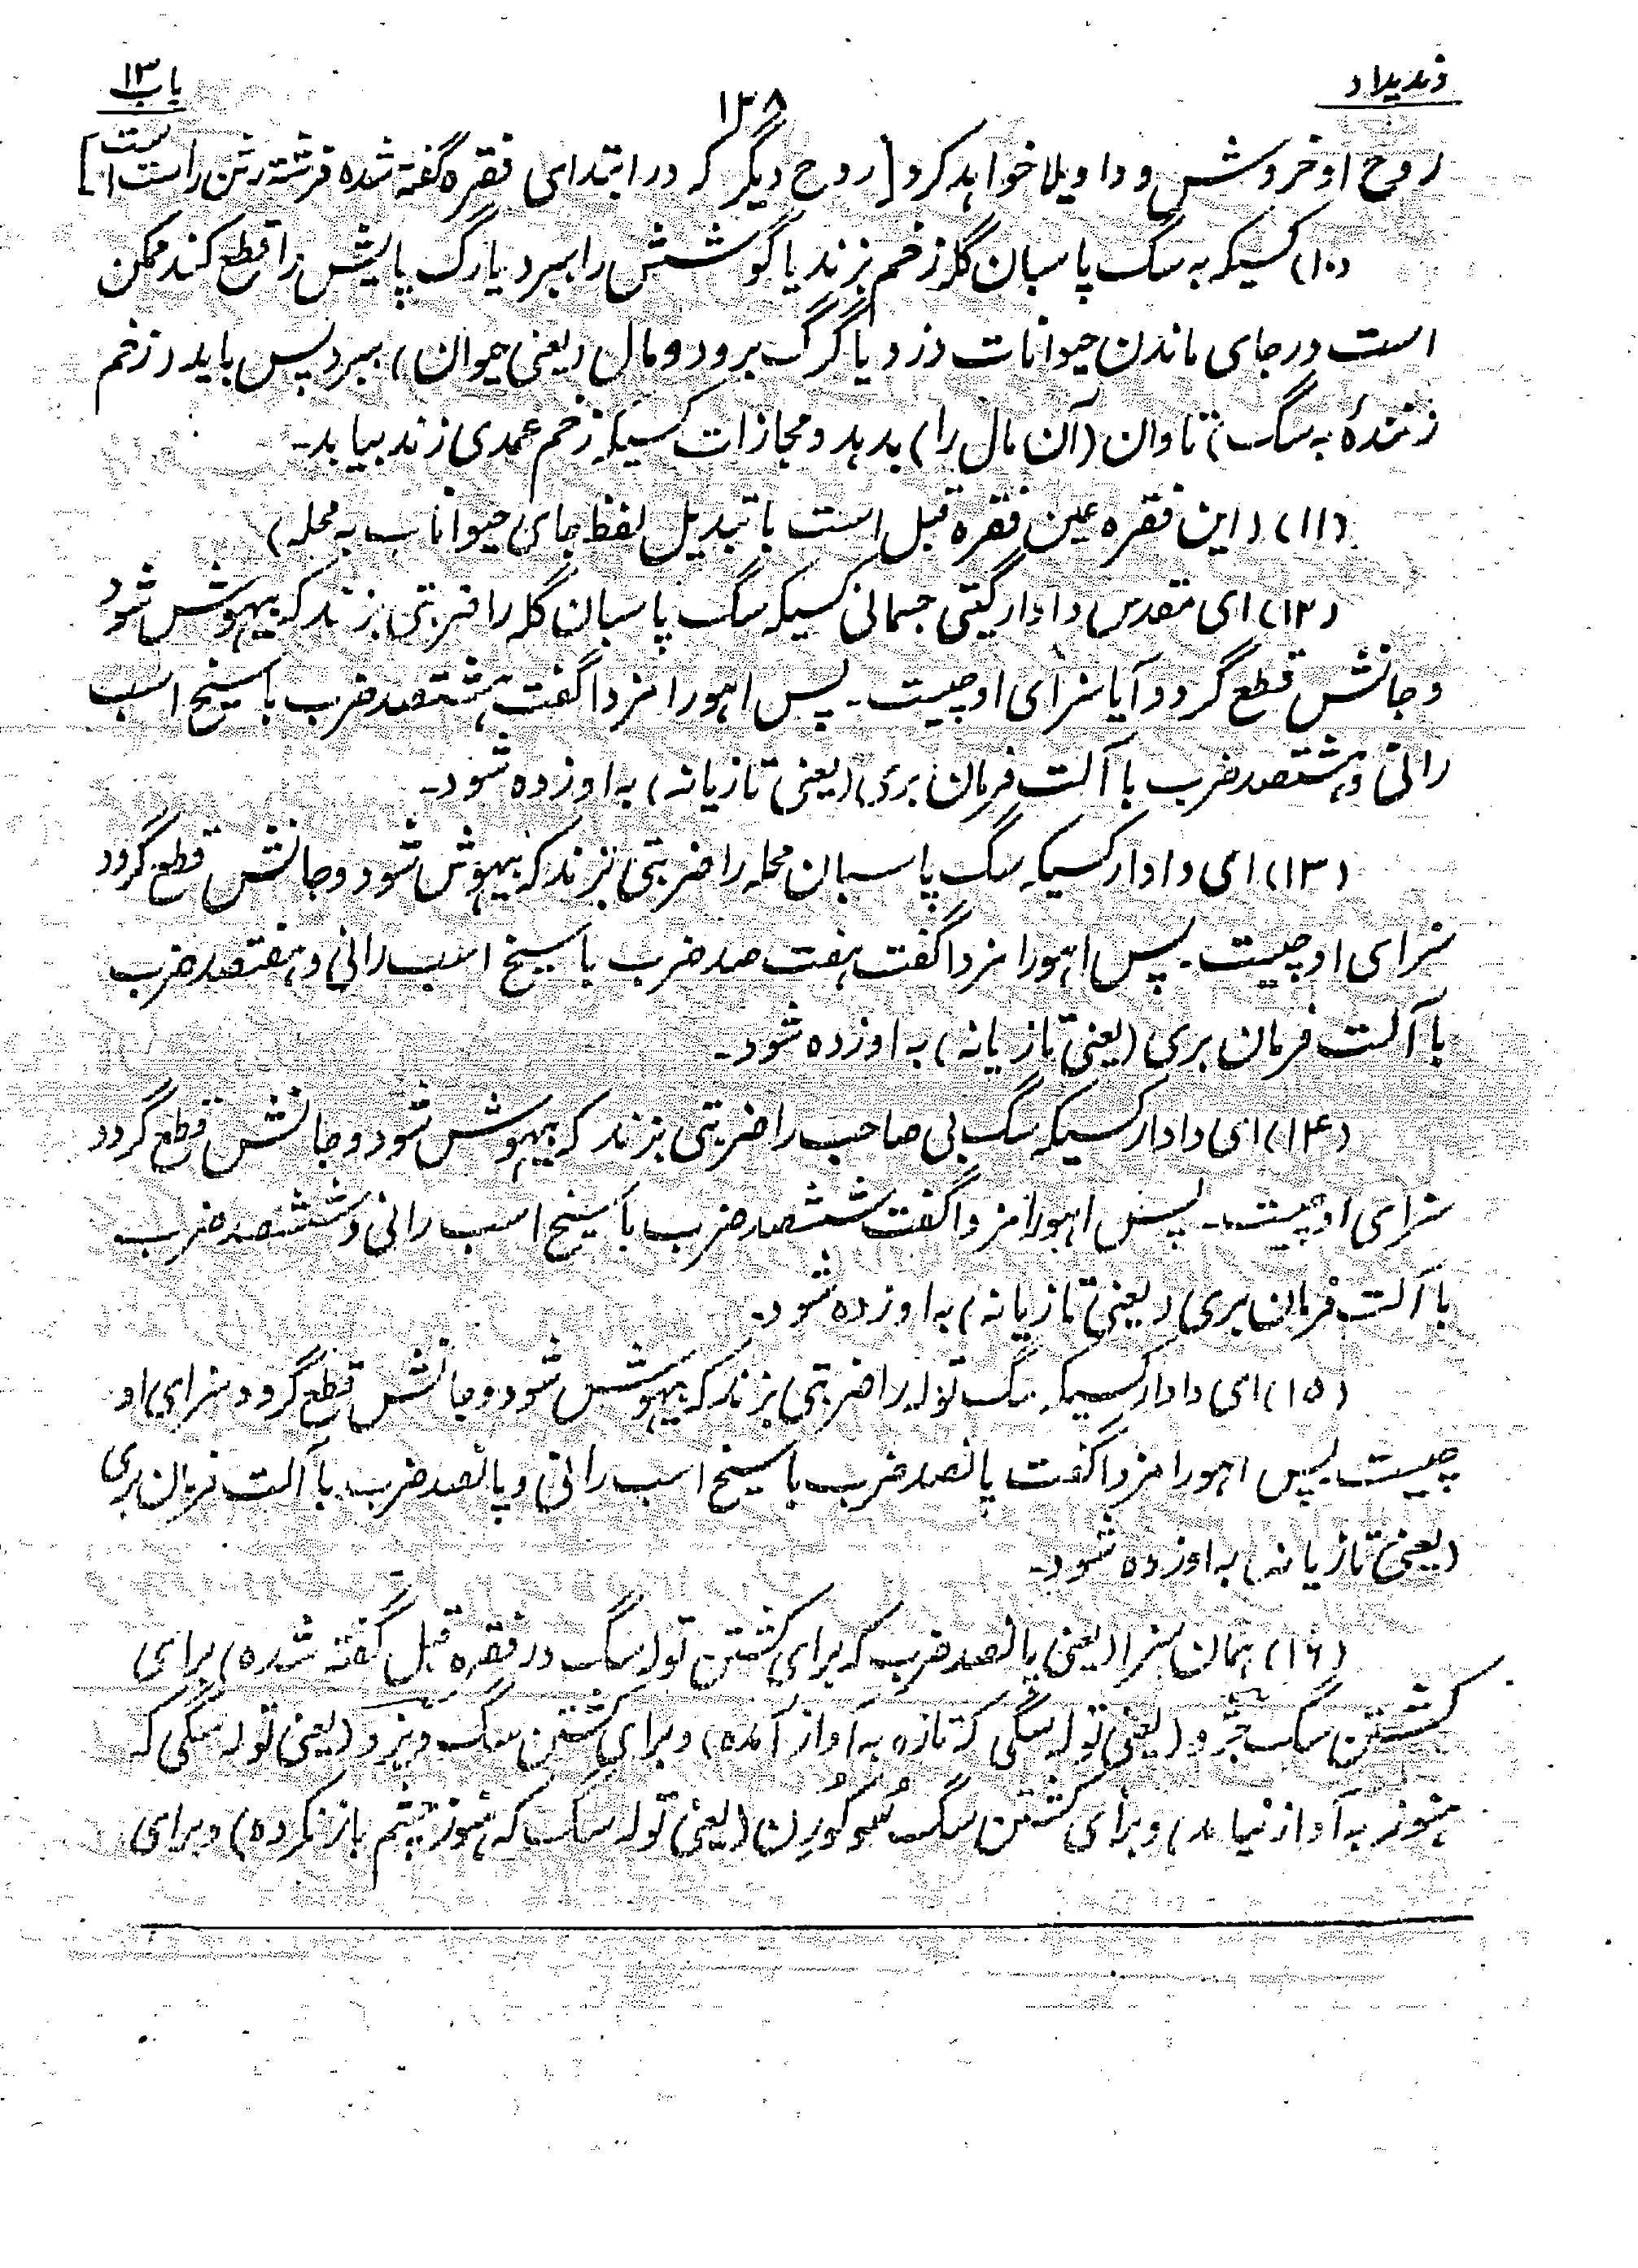 وندیداد
۱۳۸
باب ۱۳
روح او خروش و واویلا خواهد کرد [روح دیگر که در ابتدای فقره گفته شده فرشته رشن راست است]
(۱۰) کسیکه به سگ پاسبان گله زخم بزند یا گوشش را ببرد یا رگ پایش را قطع کند ممکن
است در جای ماندن حیوانات دزد یا گرگ برود و مال (یعنی حیوان) ببرد پس باید (زخم
زنندهٔ به سگ) تاوان (آن مال را) بدهد و مجازات کسیکه زخم عمدی زند بیابد۔
(۱۱) (این فقره عین فقره قبل است با تبدیل لفظ جای حیوانات به محله)
(۱۲) ای مقدس دادار گیتی جسمانی کسیکه سگ پاسبان گله را ضربتی بزند که بیهوش شود
و جانش قطع گردد آیا سزای او چیست۔ پس اهورا مزدا گفت هشتصد ضرب با سیخ اسب
رانی و هشتصد ضرب با آلت فرمان بری (یعنی تازیانه) به او زده شود۔
(۱۳) ای دادار کسیکه سگ پاسبان محله را ضربتی بزند که بیهوش شود و جانش قطع گردد
سزای او چیست۔ پس اهورا مزدا گفت هفت صد ضرب با سیخ اسب رانی و هفتصد ضرب
با آلت فرمان بری (یعنی تازیانه) به او زده شود۔
(۱۴) ای دادار کسیکه سگ بی صاحب را ضربتی بزند که بیهوش شود و جانش قطع گردد
سزای او چیست۔ پس اهورا مزدا گفت ششصد ضرب با سیخ اسب رانی و ششصد ضرب
با آلت فرمان بری (یعنی تازیانه) به او زده شود۔
(۱۵) ای دادار کسیکه سگ توله را ضربتی بزند که بیهوش شود و جانش قطع گردد سزای او
چیست پس اهورا مزدا گفت پانصد ضرب با سیخ اسب رانی و پانصد ضرب با آلت فرمان بری
(یعنی تازیانه) به او زده شود۔
(۱۶) همان سزا (یعنی پانصد ضرب که برای کشتن توله سگ در فقره قبل گفته شده) برای
کشتن سگ جژو (یعنی توله سگی که تازه به آواز آمده) و برای کشتن سگ ویزو (یعنی توله سگی که
هنوز به آواز نیامده) و برای کشتن سگ سوکورن (یعنی توله سگ که هنوز چشم باز نکرده) و برای